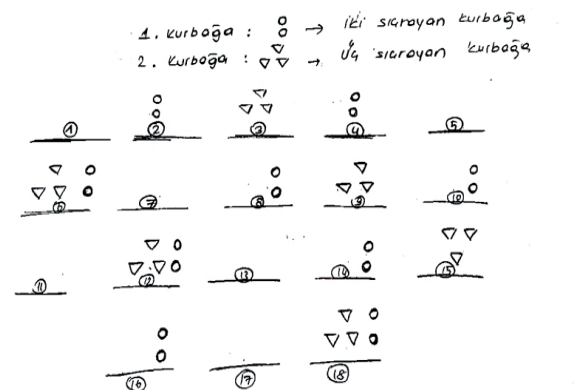 1. kurbağa : → iki sıçrayan kurbağa
2. kurbağa : → Üç sıçrayan kurbağa
1 2 3 4 5
6 7 8 9 10
11 12 13 14 15
16 17 18